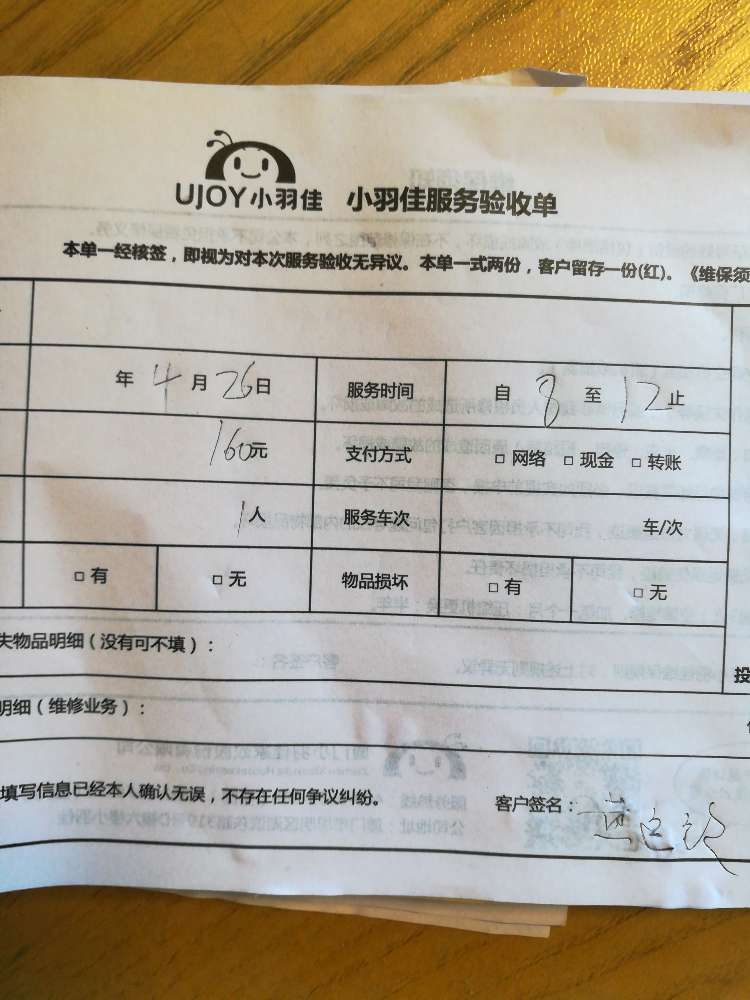 UJOY小羽佳 小羽佳服务验收单
本单一经核签，即视为对本次服务验收无异议。本单一式两份，客户留存一份(红)。《维保须
年 4 月 26 日 服务时间 自 8 至 12 止
160元 支付方式 □ 网络 □ 现金 □ 转账
1人 服务车次 车/次
□ 有 □ 无 物品损坏 □ 有 □ 无
失物品明细（没有可不填）：
投
明细（维修业务）：
填写信息已经本人确认无误，不存在任何争议纠纷。 客户签名：